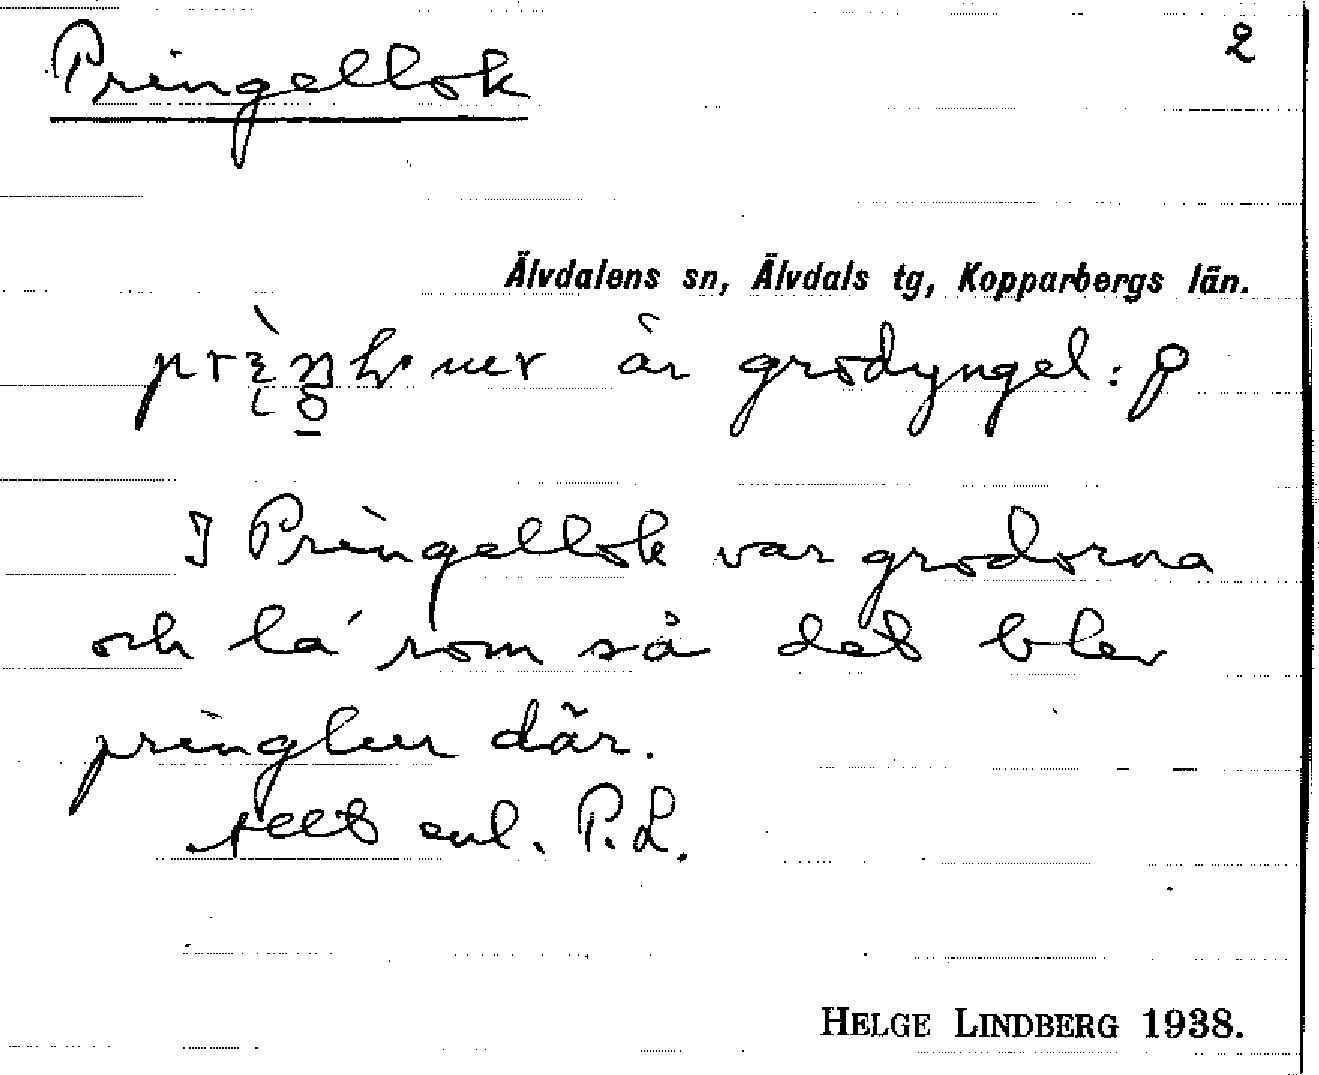 Pringellok
2
Älvdalens sn, Älvdals tg, Kopparbergs län.
är grodyngel:
I Pringellok var grodorna
och la' rom så det blev
pringlur där.
allt enl. P.L.
HELGE LINDBERG 1938.